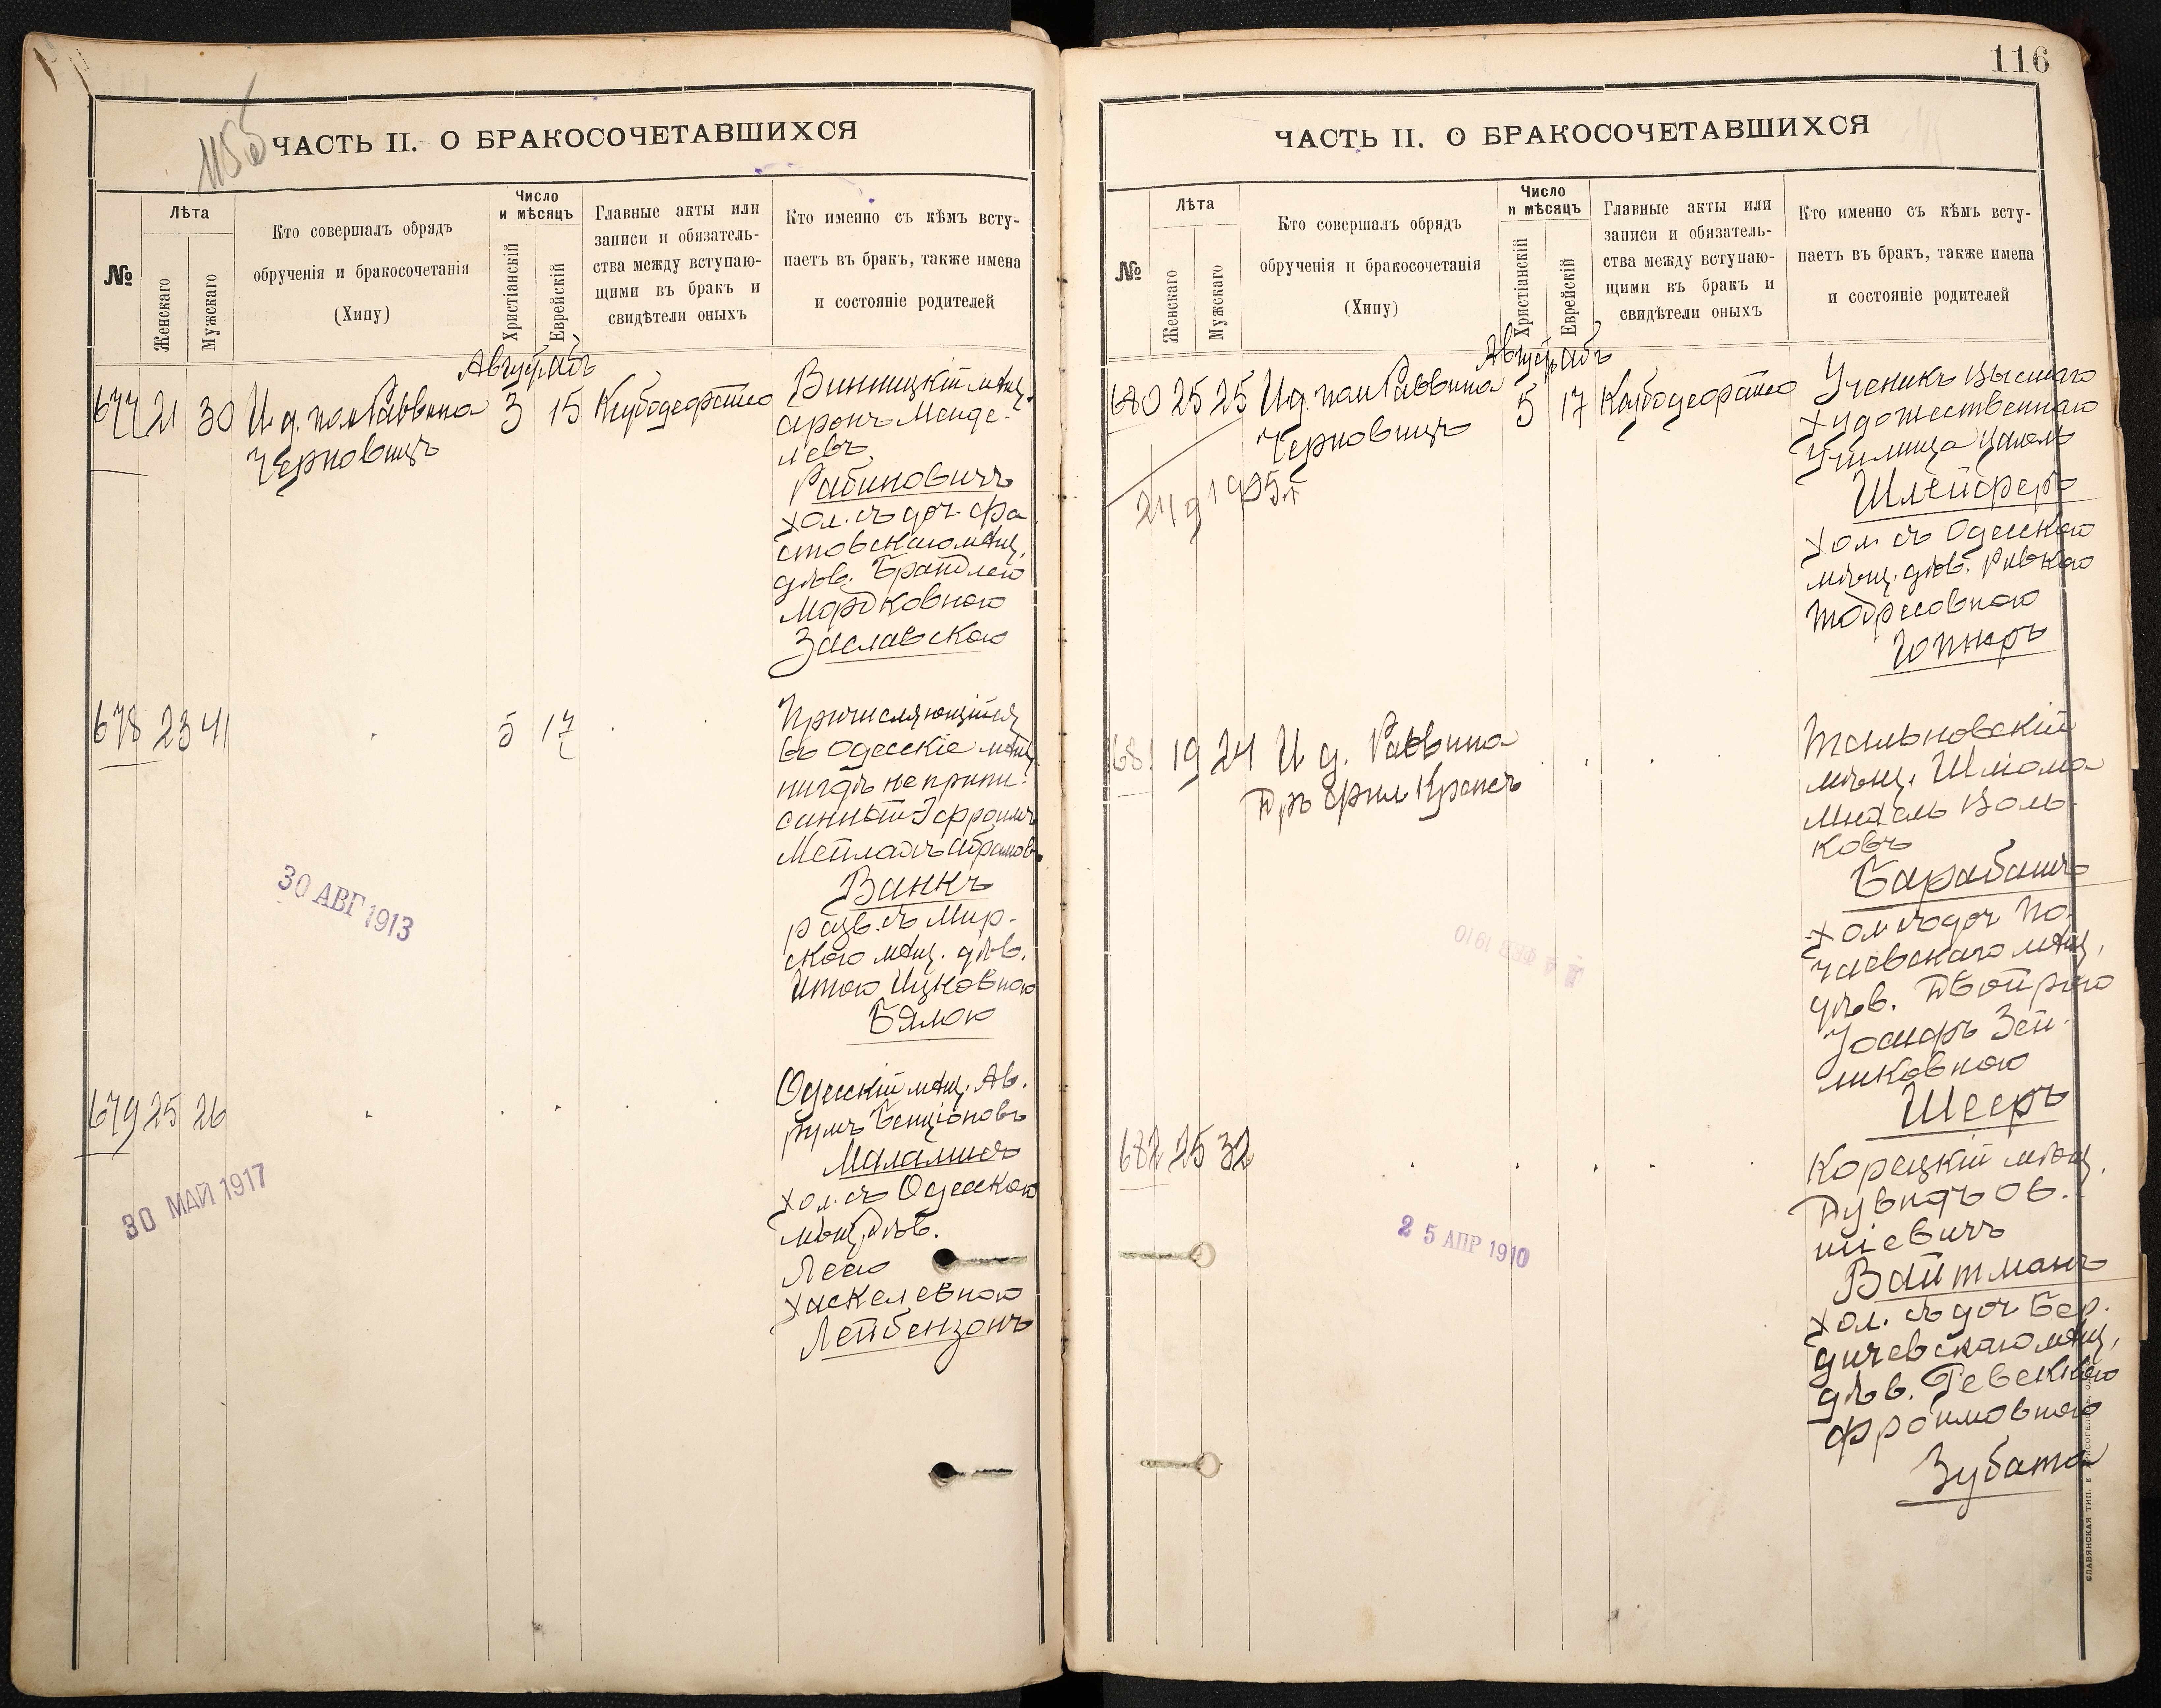 115б
ЧАСТЬ II. О БРАКОСОЧЕТАВШИХСЯ
№
Лѣта
Женскаго
Мужскаго
Кто совершалъ обрядъ
обрученія и бракосочетанія
(Хипу)
Число
и мѣсяцъ
Христіанскій
Еврейскій
Главные акты или
записи и обязатель-
ства между вступаю-
щими въ бракъ и
свидѣтели оныхъ
Кто именно съ кѣмъ всту-
паетъ въ бракъ, также имена
и состояніе родителей
Августъ Абъ
677 21 30 И д. пом Раввина 3 15
Черновицъ
Винницкій мѣщ.
Аронъ Менде-
левъ
Рабиновичъ
хол. съ доч. Фа
стовскаго мѣщ.
дѣв. Брайдлею
Мордковною
Заславскою
678 23 41 5 17
Причисляющійся
въ Одесскіе мѣщ
нигдѣ не припи-
санный Эфроимъ
Мейлахъ Абрамов.
Ванкъ
разв. съ Мир-
скою мѣщ. дѣв.
Итою Ицковною
Бялою
679 25 26
Одесскій мѣщ. Ав.
румъ Бенціоновъ
Маламудъ
хол. съ Одесскою
мѣщ. дѣв.
Леею
Хаскелевною
Лейбензонъ
30 АВГ 1913
30 МАЙ 1917
116
ЧАСТЬ II. О БРАКОСОЧЕТАВШИХСЯ
№
Лѣта
Женскаго
Мужскаго
Кто совершалъ обрядъ
обрученія и бракосочетанія
(Хипу)
Число
и мѣсяцъ
Христіанскій
Еврейскій
Главные акты или
записи и обязатель-
ства между вступаю-
щими въ бракъ и
свидѣтели оныхъ
Кто именно съ кѣмъ всту-
паетъ въ бракъ, также имена
и состояніе родителей
Августъ Абъ
680 25 25 И д. пом Раввина 5 17
Черновицъ
Ученикъ Высшаго
художественнаго
Училища
Шлейферъ
хол. съ Одесскою
мѣщ. дѣв. Ривкою
Тодресовною
Гопнеръ
681 19 24 И д. Раввина
Д-ръ Крепсъ
Тальновскій
мѣщ. Шлома
Михель Воль-
ковъ
Барабашъ
хол съ доч По-
чаевскаго мѣщ.
дѣв. Двойрою
Зей-
ликовною
Шееръ
682 25 32
Корецкій мѣщ.
Дувидъ Ов-
шіевичъ
Вайтманъ
хол. съ доч Бер-
дичевскаго мѣщ.
дѣв. Ревеккою
Фроимовною
Зубата
25 АПР 1910
СЛАВЯНСКАЯ ТИП. Е